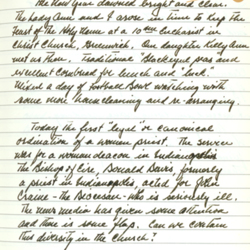 The New Year dawned bright and clear.
The Lady Ann and I arose in time to keep the
Feast of the Holy Name at a 10 am Eucharist in
Christ Church, Greenwich. Our daughter Kelly Ann
met us there. Traditional Blackeyed peas and
excellent cornbread for lunch and "luck."
Midst a day of football Bowl watching with
some more homecleaning and re-arranging.
Today the first "legal" or canonical
ordination of a woman priest. The service
was for a woman deacon in Indianapolis
The Bishop of Eire, Donald Davis, formerly
a priest in Indianapolis, acted for John
Craine - the Diocesan - who is seriously ill.
The news media has given some attention
and there is some flap. Can we contain
this diversity in the Church?